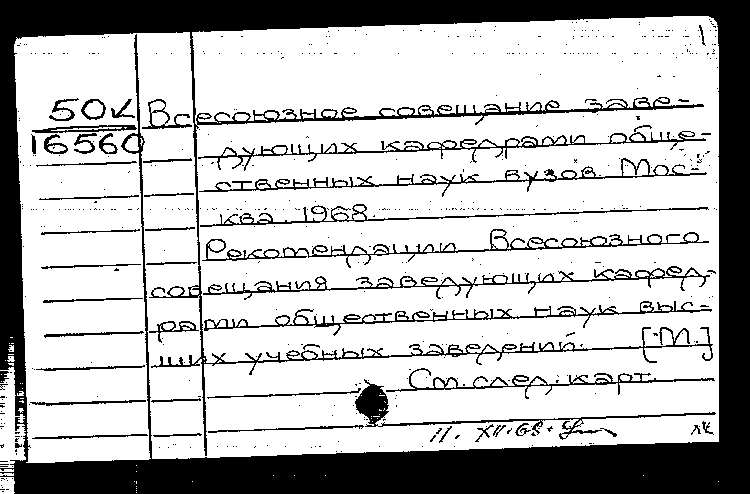 1
50К Всесоюзное совещание заве-
16560 дующих кафедрами обще-
ственных наук вузов. Мос-
ква. 1968.
Рекомендации Всесоюзного
совещания заведующих кафед-
рами общественных наук выс-
ших учебных заведений. [М.]
См. след. карт.
11.XII.68.